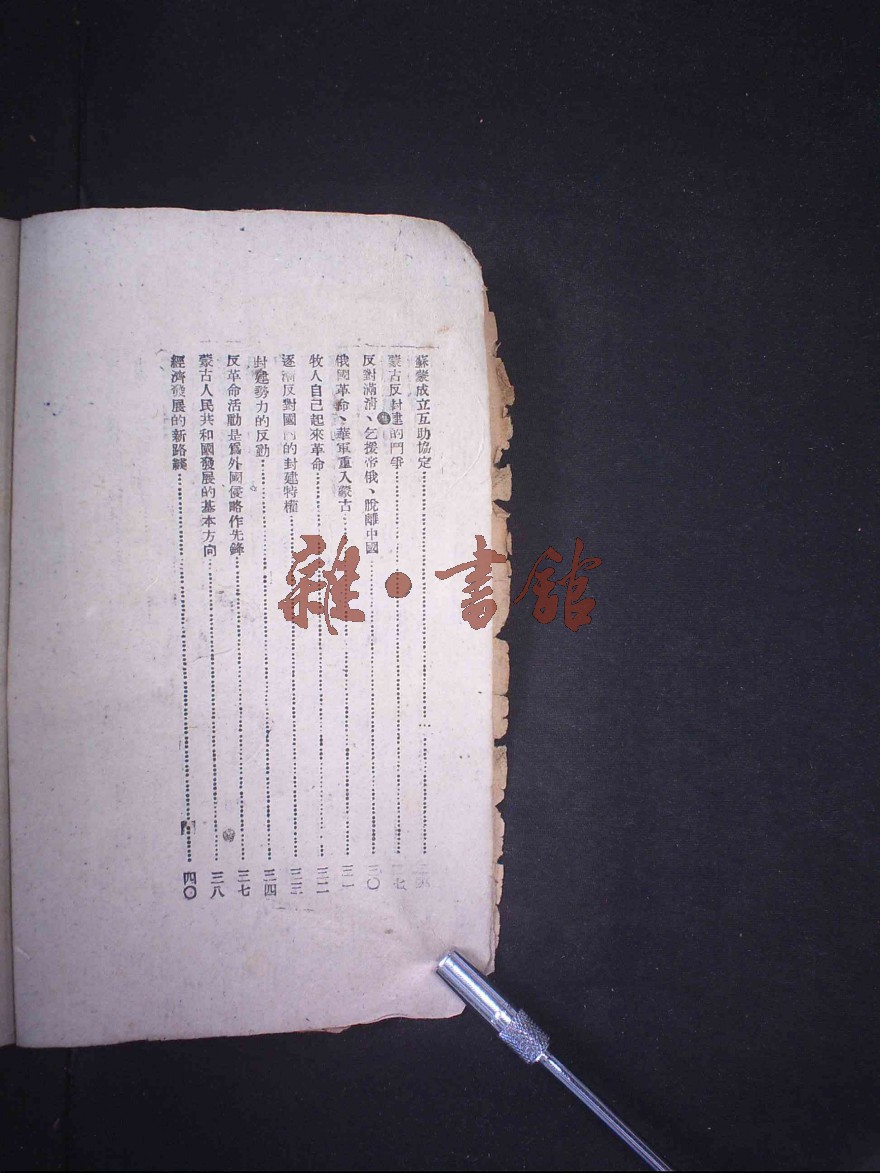 蘇蒙成立互助協定
蒙古反封建的鬥爭
反對滿清、乞援帝俄、脫離中國 三〇
俄國革命、華軍重入蒙古 三一
牧人自己起來革命 三二
逐漸反對國內的封建特權 三三
封建勢力的反動 三四
反革命活動是爲外國侵略作先鋒 三七
蒙古人民共和國發展的基本方向 三八
經濟發展的新路綫 四〇
雜·書館